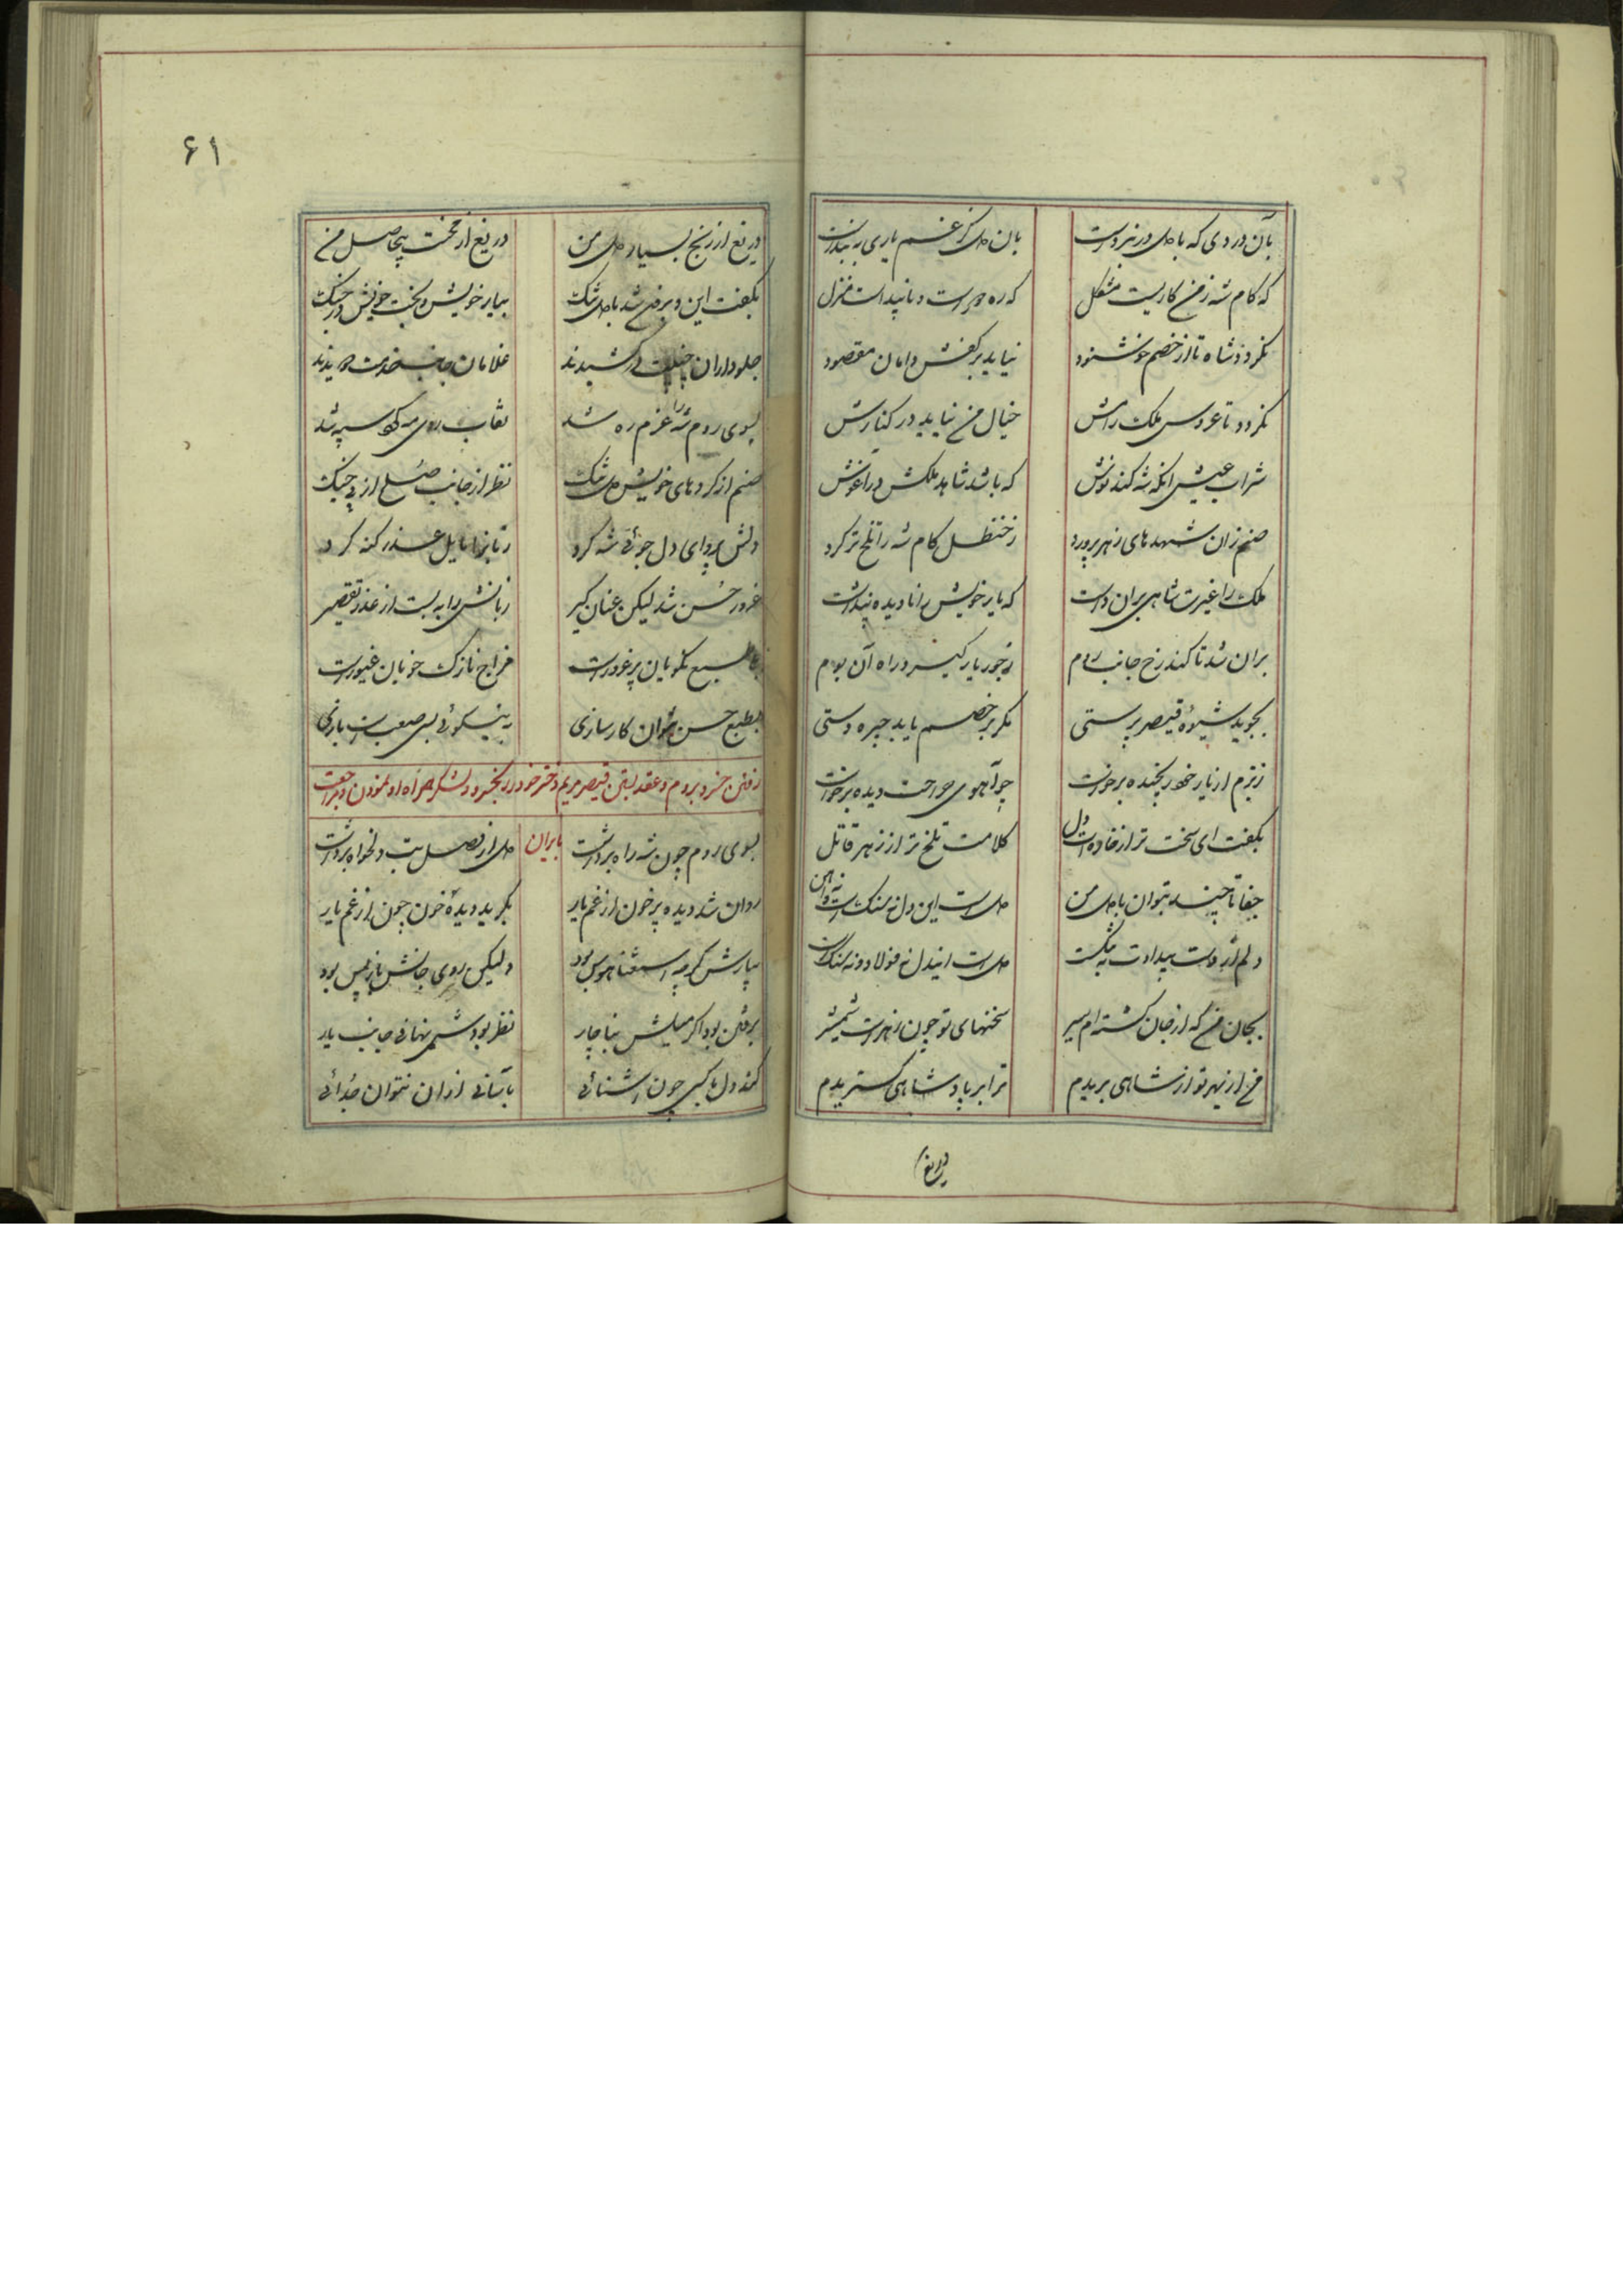 بآن دردی که با دل در نبردست بان دل کز غم یاری
که کام شه ز من کاریست مشکل که ره دورست و ناپیداست منزل
نگردد شاه تا از خصم خوشنود نیاید بر کفش دامان مقصود
نگردد تا عروس ملک رامش خیال من نیاید در کنارش
شراب عیش انکه شه کند نوش که باشد شاهد ملکش در اغوش
صنم زان شهدهای زهر پرورد ز حنظل کام شه را تلخ تر کرد
ملک را غیرت شاهی بران داشت که یار خویش را نادیده پنداشت
بران شد تا کند رخ جانب روم ز جور یار گیرد راه آن بوم
بجوید شیوه قیصر پرستی مگر بر خصم یابد چیره دستی
ز بزم از یار خود رنجیده برخواست چو آهوی جراحت دیده برخواست
بگفت ای سخت تر از خاره ات دل کلامت تلخ تر از زهر قاتل
جفا تا چند بتوان با دل من دلست این دل نه سنگست و نه اهن
دلم از دست بیدادت به تنگست دلست ایندل نه فولاد و نه سنگست
بجان من که از جان گشته ام سیر سخنهای تو چون زهرست شمشیر
من از بهر تو از شاهی بریدم ترا بر پادشاهی گزیدم
دریغ از
۶۱
دریغ از رنج بسیار دل من دریغ از بخت بیحاصل من
بگفت این و برون شد با دل تنگ بیار خویش و بخت خویش در جنگ
جلوداران جنیبت در کشیدند غلامان جانب خدمت دویدند
بسوی روم شه را عزم ره شد نقاب روی مه گرد سپه شد
صنم از کردهای خویش دل تنگ نظر از جانب صلح از پی جنگ
دلش پروای دل جوئی شه کرد زبانرا مایل عذر گنه کرد
غرور حسن شد لیکن عنان گیر زبانش را به بست از عذر تقصیر
طبع نکویان پر غرورست مزاج نازک خوبان غیورست
بطبع حسن نتوان کارسازی به نیکوئی بس صعبست بازی
رفتن خسرو بروم و عقد بستن قیصر مریم دختر خود را بخسرو و لشکر همراه او نمودن و مراجعت بایران
بسوی روم چون شه راه برداشت دل از وصل بت دلخواه برداشت
روان شد دیده پر خون از غم یار نگرید دیده خون چون از غم یار
بپایش گرچه استغنا هوس بود ولیکن روی جانش باز پس بود
برفتن بود اگر میلش بناچار نظر بودش نهانی جانب یار
کند دل با کسی چون آشنائی بآسانی ازان نتوان جدائی